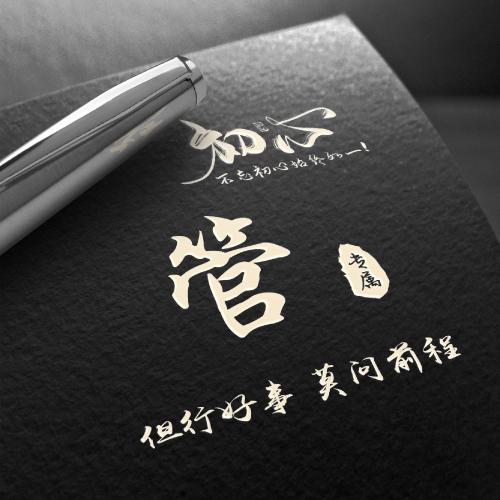 初心
不忘初心始终如一!
管
专属
但行好事 莫问前程